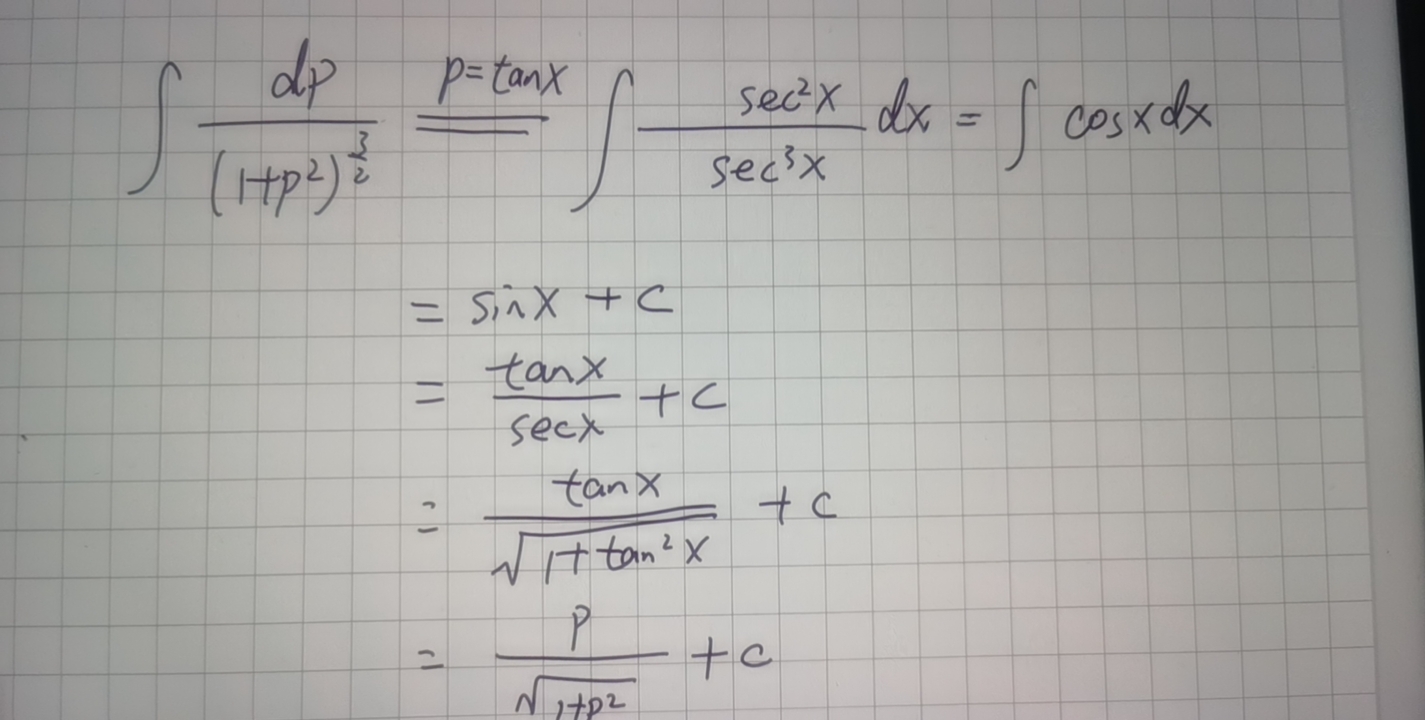 ∫ dp/(1+p²)^(3/2) =(p=tanx)= ∫ sec²x/sec³x dx = ∫ cosxdx
= sinx + C
= tanx/secx + C
= tanx/√(1+tan²x) + C
= p/√(1+p²) + C